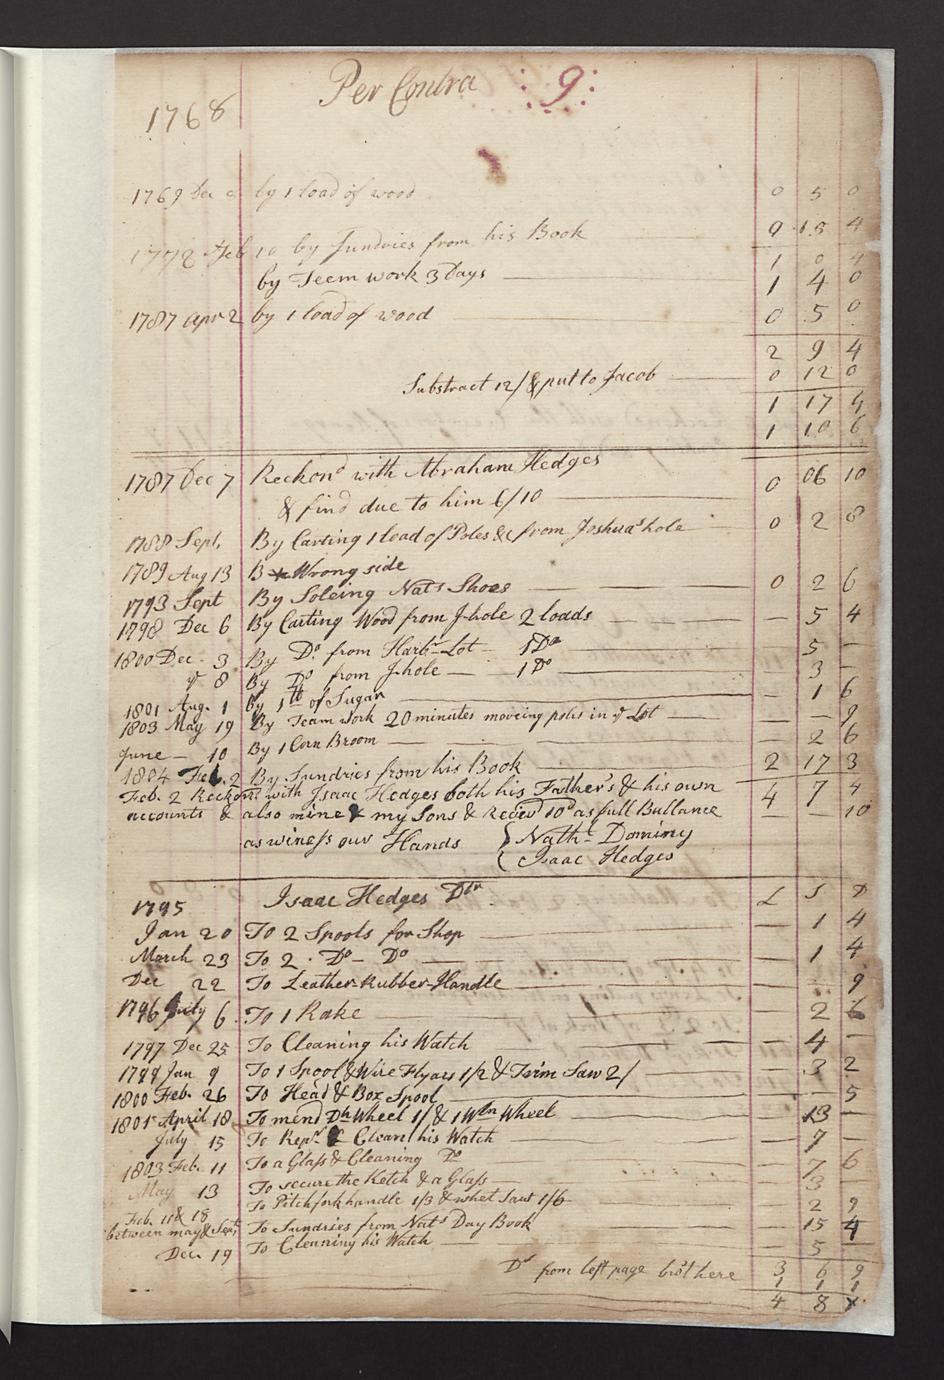 Per Contra :9:
1768
1769 Dec by 1 load of wood 0 5 0
1772 Feb 10 by Sundries from his Book 9 15 4
1 0 4
by Teem work 3 Days 1 4 0
1787 apr 2 by 1 load of wood 0 5 0
2 9 4
Substract 12/ & put to Jacob 0 12 0
1 17 4
1 10 6
1787 Dec 7 Reckond with Abraham Hedges
& find due to him 6/10 0 06 10
1788 Sept. By Carting 1 load of Poles &c from Joshuas hole 0 2 8
1789 Aug 13 B Wrong side
1793 Sept By Soleing Nats Shoes 0 2 6
1798 Dec 6 By Carting Wood from J-hole 2 loads — 5 4
1800 Dec. 3 By Do. from Harbr Lot 1 Do 5 —
8 By Do from J-hole — 1 Do 3 —
1801 Aug. 1 by 1 lb of Sugar — 1 6
1803 May 19 By Team work 20 minutes moveing poles in ye Lot — — 9
June — 10 By 1 Corn Broom — — 2 6
1804 Feb. 2 By Sundries from his Book 2 17 3
Feb. 2 Reckond with Isaac Hedges both his Father's & his own 4 7 4
accounts & also mine & my Sons & Recevd 10d as full Ballance — — 10
as winess our Hands { Nathl. Dominy
{ Isaac Hedges
1795 Isaac Hedges Dtr. £ S D
Jan 20 To 2 Spools for Shop — 1 4
March 23 To 2 . Do — Do — 1 4
Dec 22 To Leather Rubber Handle 9
1796 July 6 To 1 Rake 2 6
1797 Dec 25 To Cleaning his Watch — 4 —
1799 Jan 9 To 1 Spool & Wire Flyars 1/2 & Trim Saw 2/ — 3 2
1800 Feb. 26 To Head & Box Spool — — 5
1801 April 18 To mend Dh Wheel 1/ & 1 Wln Wheel 13 —
July 15 To Repr. & Clean his Watch — 7 —
1803 Feb. 11 To a Glass & Cleaning Do 7 6
May 13 To secure the Ketch & a Glass 3 —
Feb. 11 & 18 To Pitchfork handle 1/3 & whet Saws 1/6 2 9
between may & Sept. To Sundries from Nats Day Book 15 4
Dec. 19 To Clenning his Watch — 5 —
3 6 9
Do from left page brot here 1 1 1
4 8